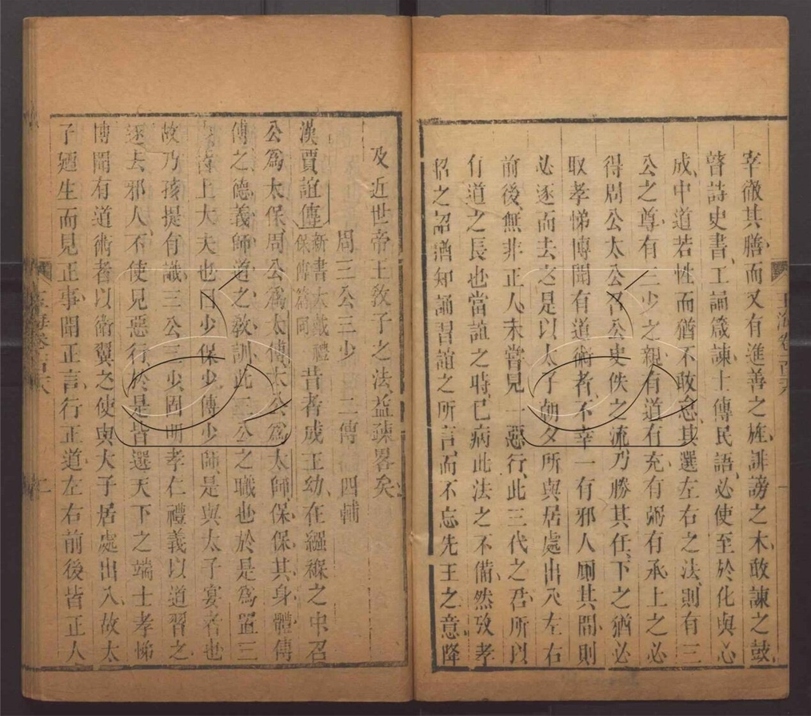 宰徹其膳而又有進善之旌誹謗之木敢諫之鼓
瞽詩史書工誦箴諫士傳民語必使至於化與心
成中道若性而猶不敢怠其選左右之法則有三
公之尊有三少之親有道有充有弼有承上之必
得周公太公召公史佚之流乃勝其任下之猶必
取孝悌博聞有道術者不幸一有邪人厠其間則
必逐而去之是以太子朝夕所與居處出入左右
前後無非正人未嘗見一惡行此三代之君所以
有道之長也當誼之時巳病此法之不備然攷孝
昭之詔猶知誦習誼之所言而不忘先王之意降
玉海卷一百六
及近世帝王敎子之法益疎畧矣
周三公三少 二傅 四輔
漢賈誼傳新書大戴禮保傅篇同昔者成王幼在繈褓之中召
公爲太保周公爲太傅太公爲太師保保其身體傅
傅之德義師道之敎訓此三公之職也於是爲置三
少皆上大夫也曰少保少傅少師是與太子宴者也
故乃孩提有識三公三少固明孝仁禮義以道習之
逐去邪人不使見惡行於是皆選天下之端士孝悌
博聞有道術者以衛翼之使與太子居處出入故太
子廼生而見正事聞正言行正道左右前後皆正人
玉海卷一百六
二